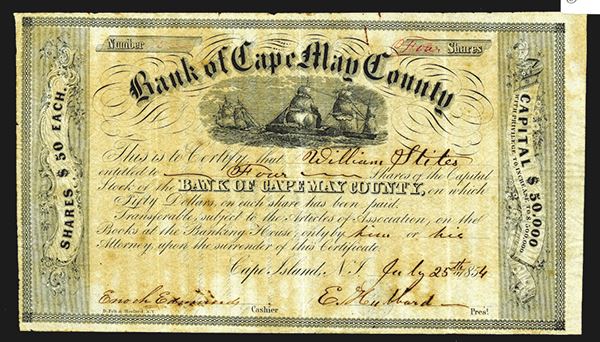 Number
Four Shares
Bank of Cape May County
SHARES $ 50 EACH.
CAPITAL $ 50,000
WITH PRIVILEGE TO INCREASE TO $ 500,000
This is to Certify that William Stites
entitled to Four Shares of the Capital
Stock of the BANK OF CAPE MAY COUNTY, on which
Fifty Dollars, on each share has been paid.
Transferable, subject to the Articles of Association, on the
Books at the Banking House, only by him or his
Attorney upon the surrender of this Certificate.
Cape Island, N.J. July 25th 1854
Enoch Edmunds Cashier E. Hubbard Prest.